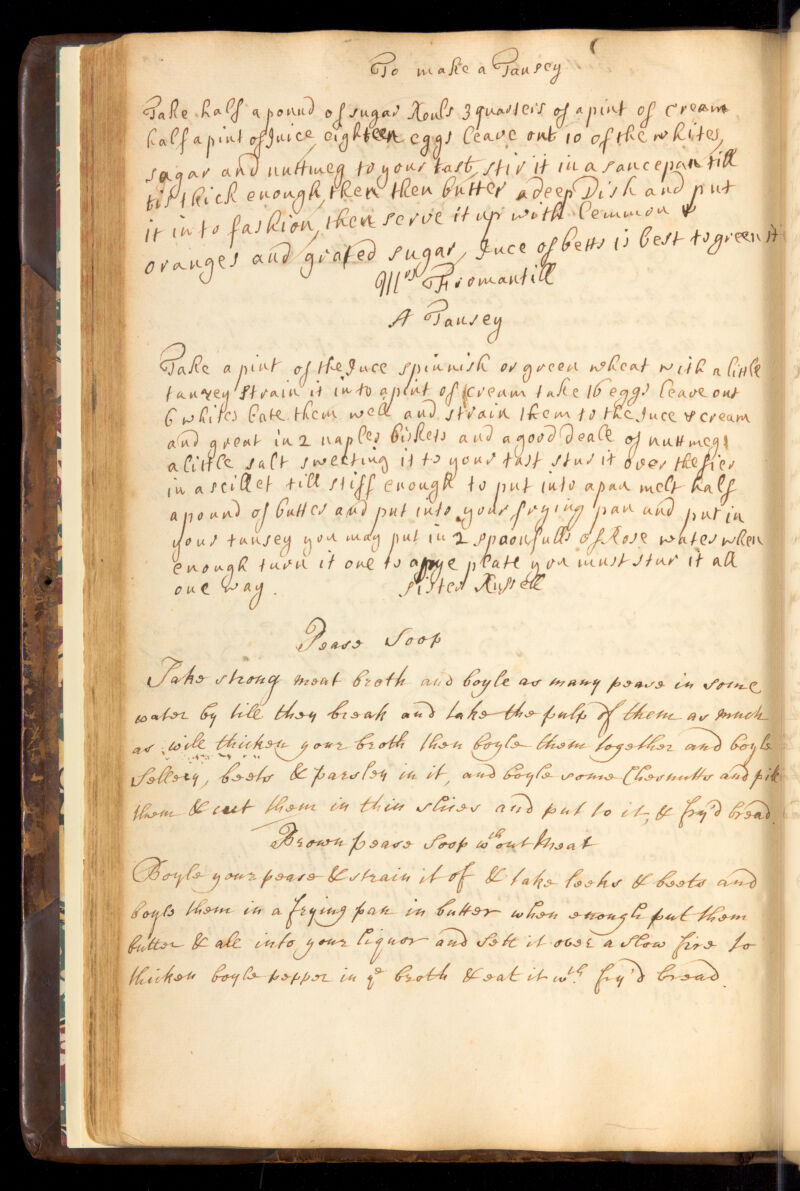 To make a Tansey
Take half a pound of sugar Rouls 3 quarters of a pint of cream
half a pint of Juice eighteen eggs leave out 10 of the whites,
sugar and nuttmeg to your tast, stir it in a sauce pan till
tis thick enough, then then butter a deep Dish and put
it in to fashion, then serve it up with Lemmon &
oranges and grated sugar, Juce of betts is best to green it
Mrs Fromantill
A Tansey
Take a pint of the Juce spinnish or green wheat with a little
tansey strain it in to a pint of cream take 16 eggs leave out
6 whites bate them well and strain them to the Juce & cream
and great in 2 naples biskets and a good deale of nuttmegs
a little salt sweeting it to your tast stur it over the fier
in a scillet till stiff enough to put into a pan melt half
a pound of butter and put into your frying pan and put in
your tansey you may put in 2 spoonfulls of Rose water when
enough turn it one to a pye plate you must stur it all
one way. sister Russell
Pease Soop
Take strong meat broth and boyle as many pease in some
water by till they break and take the pulp of them as much
as will thicken your broth then boyle them together and boyle
Sellery, beets & parsley in it, and boyle some Chesnutts and pile
them & cut them in thin slices and put to it, & fry'd bread
Brown pease Soop wth out Meat
Boyle your pease & strain it of & take leeks & beets and
boyle them in a frying pan in butter when enough put them
butter & all into your liquor and Sett it over a slow fire to
thicken boyle pepper in ye broth & eat it wth fry'd bread.